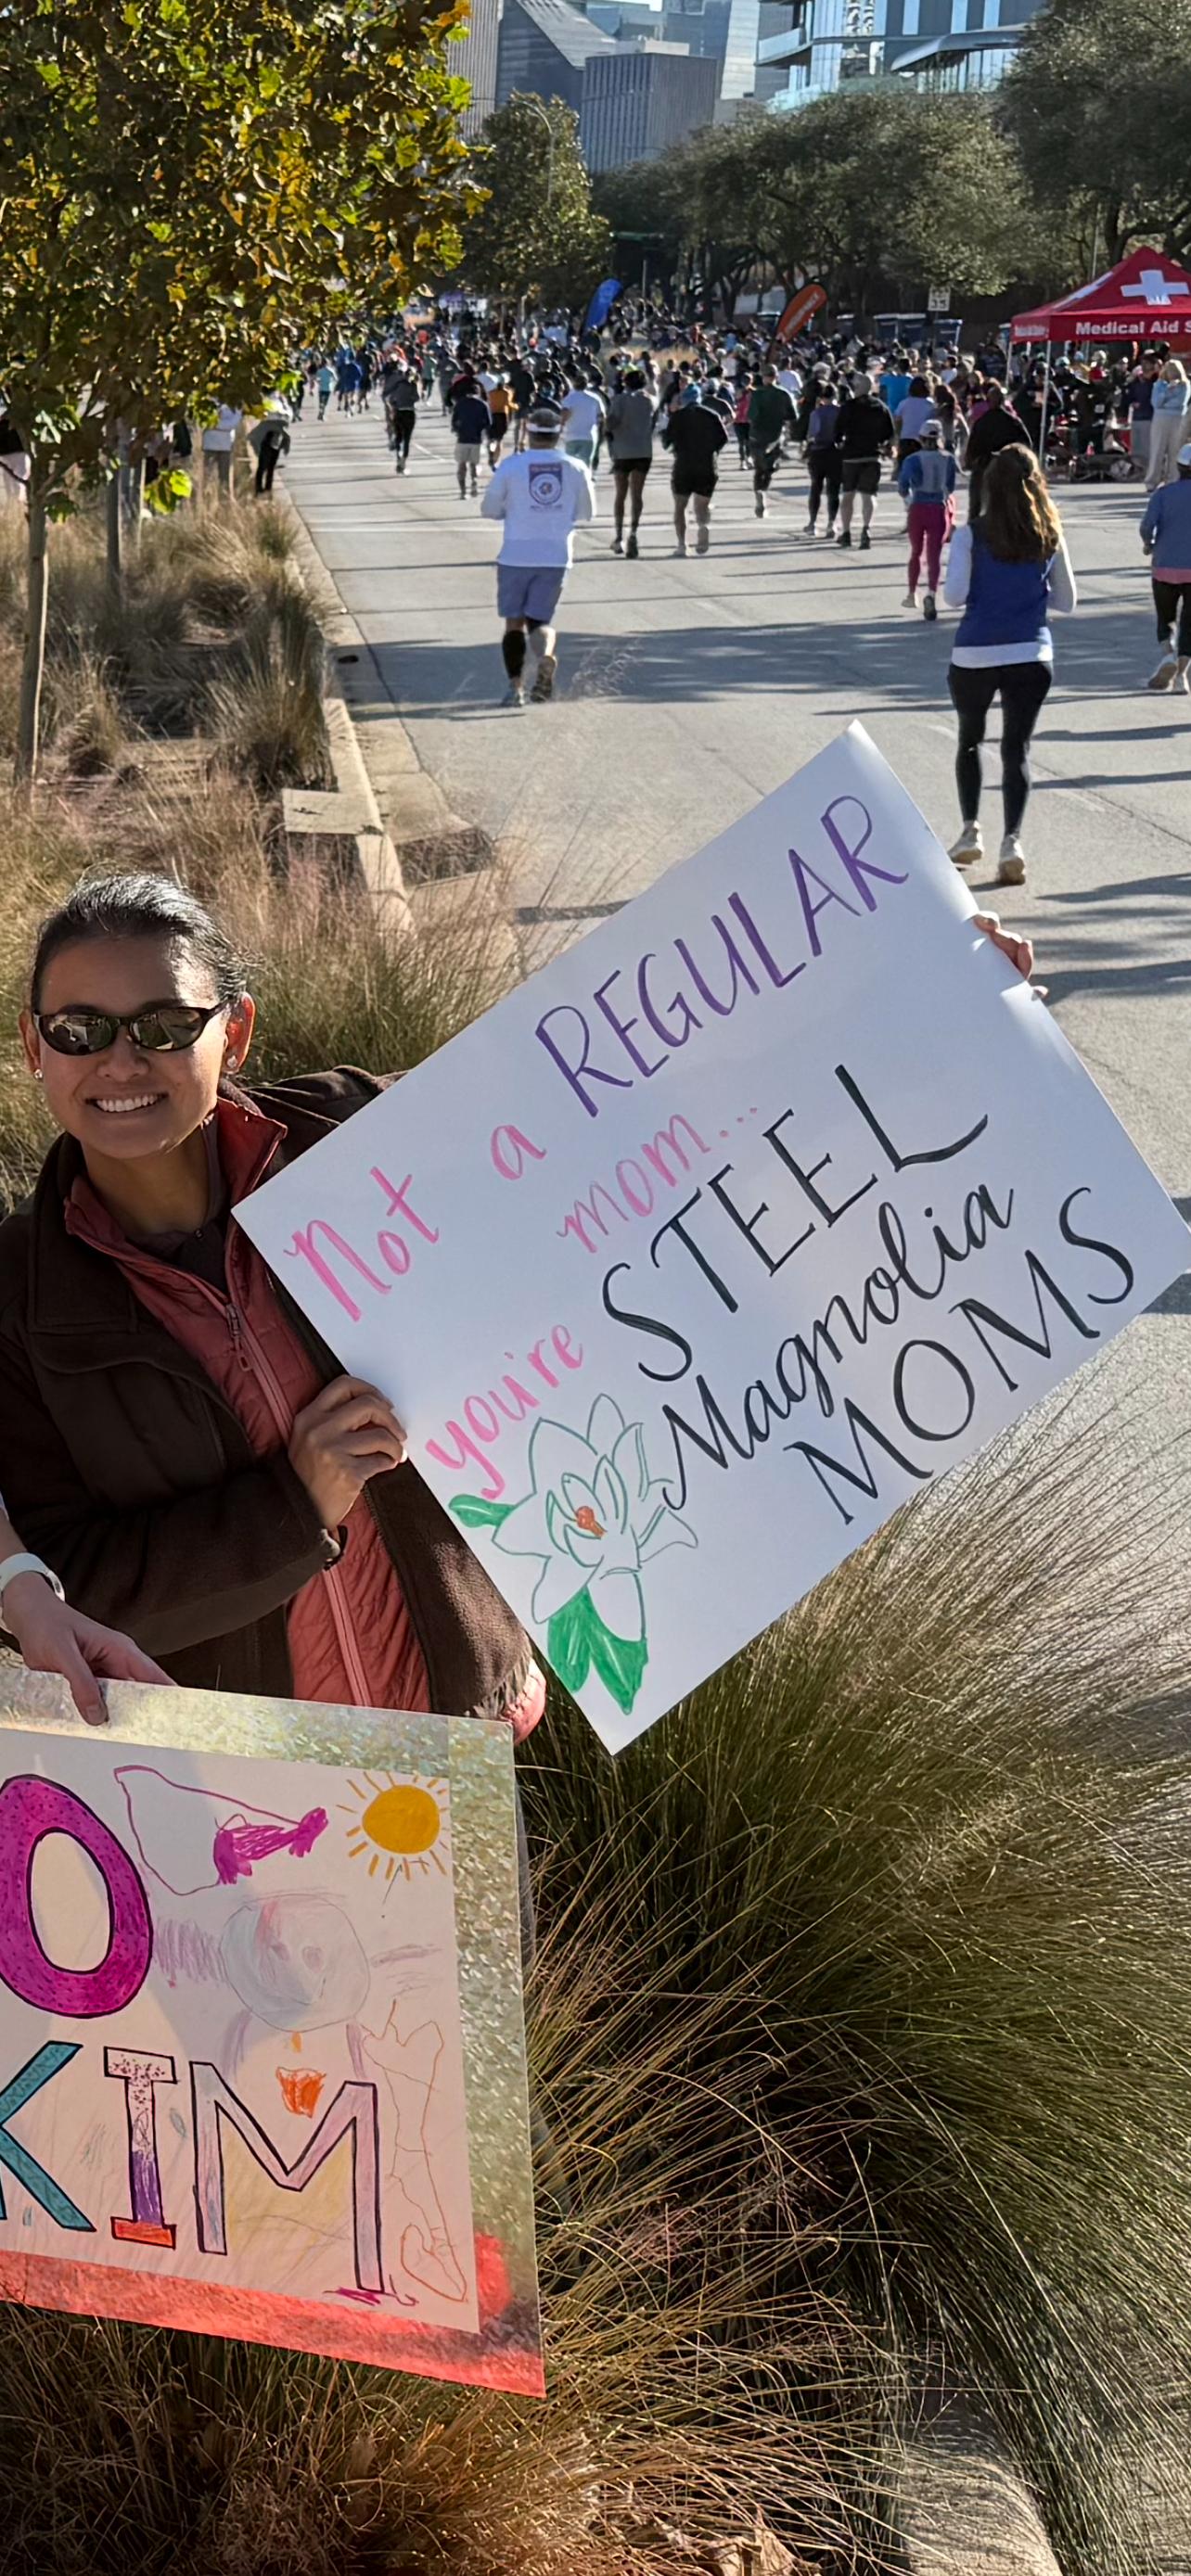 Medical Aid S
Not a REGULAR
mom...
you're STEEL
Magnolia
MOMS
O
KIM